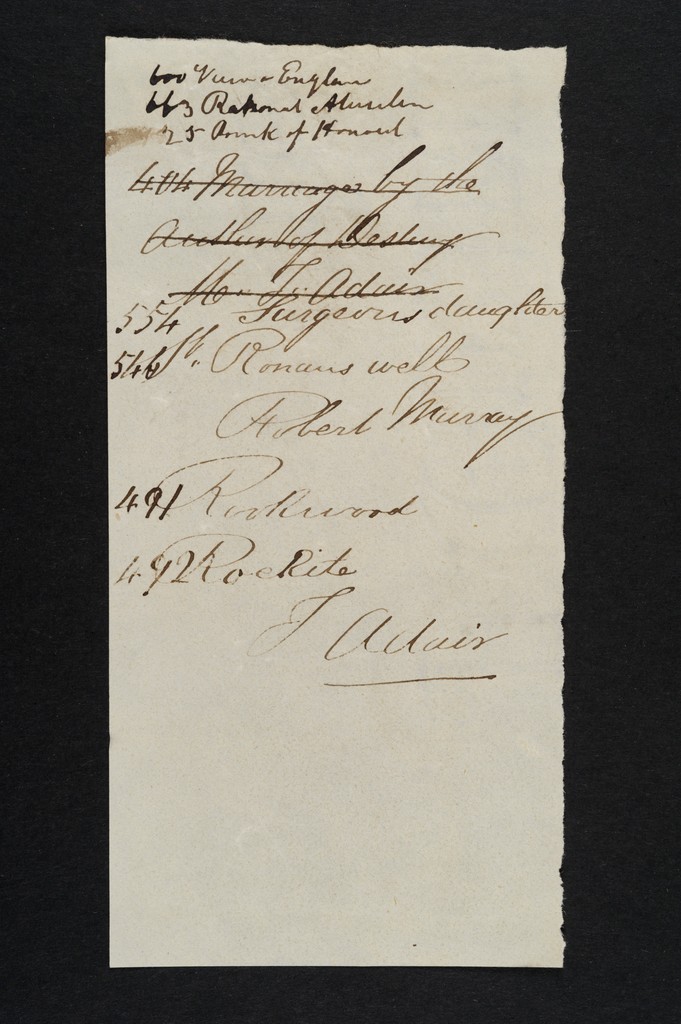 600 View - England
663 Rational
25 Drunk of Honour
404 Marriage by the
Author of Destiny
Mr. T. Adair
554 Surgeons daughter
546 St. Ronans well
Robert Murray
491 Rookwood
492 Rockite
T Adair